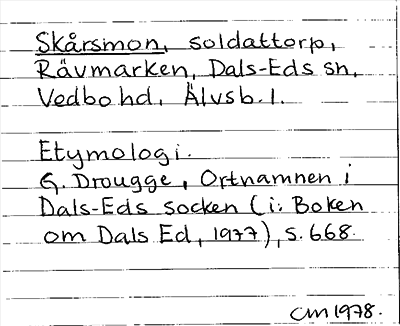 Skårsmon, soldattorp,
Rävmarken, Dals-Eds sn,
Vedbo hd, Älvsb. l.
Etymologi.
G. Drougge, Ortnamnen i
Dals-Eds socken (i: Boken
om Dals Ed, 1977), s. 668.
CM 1978.